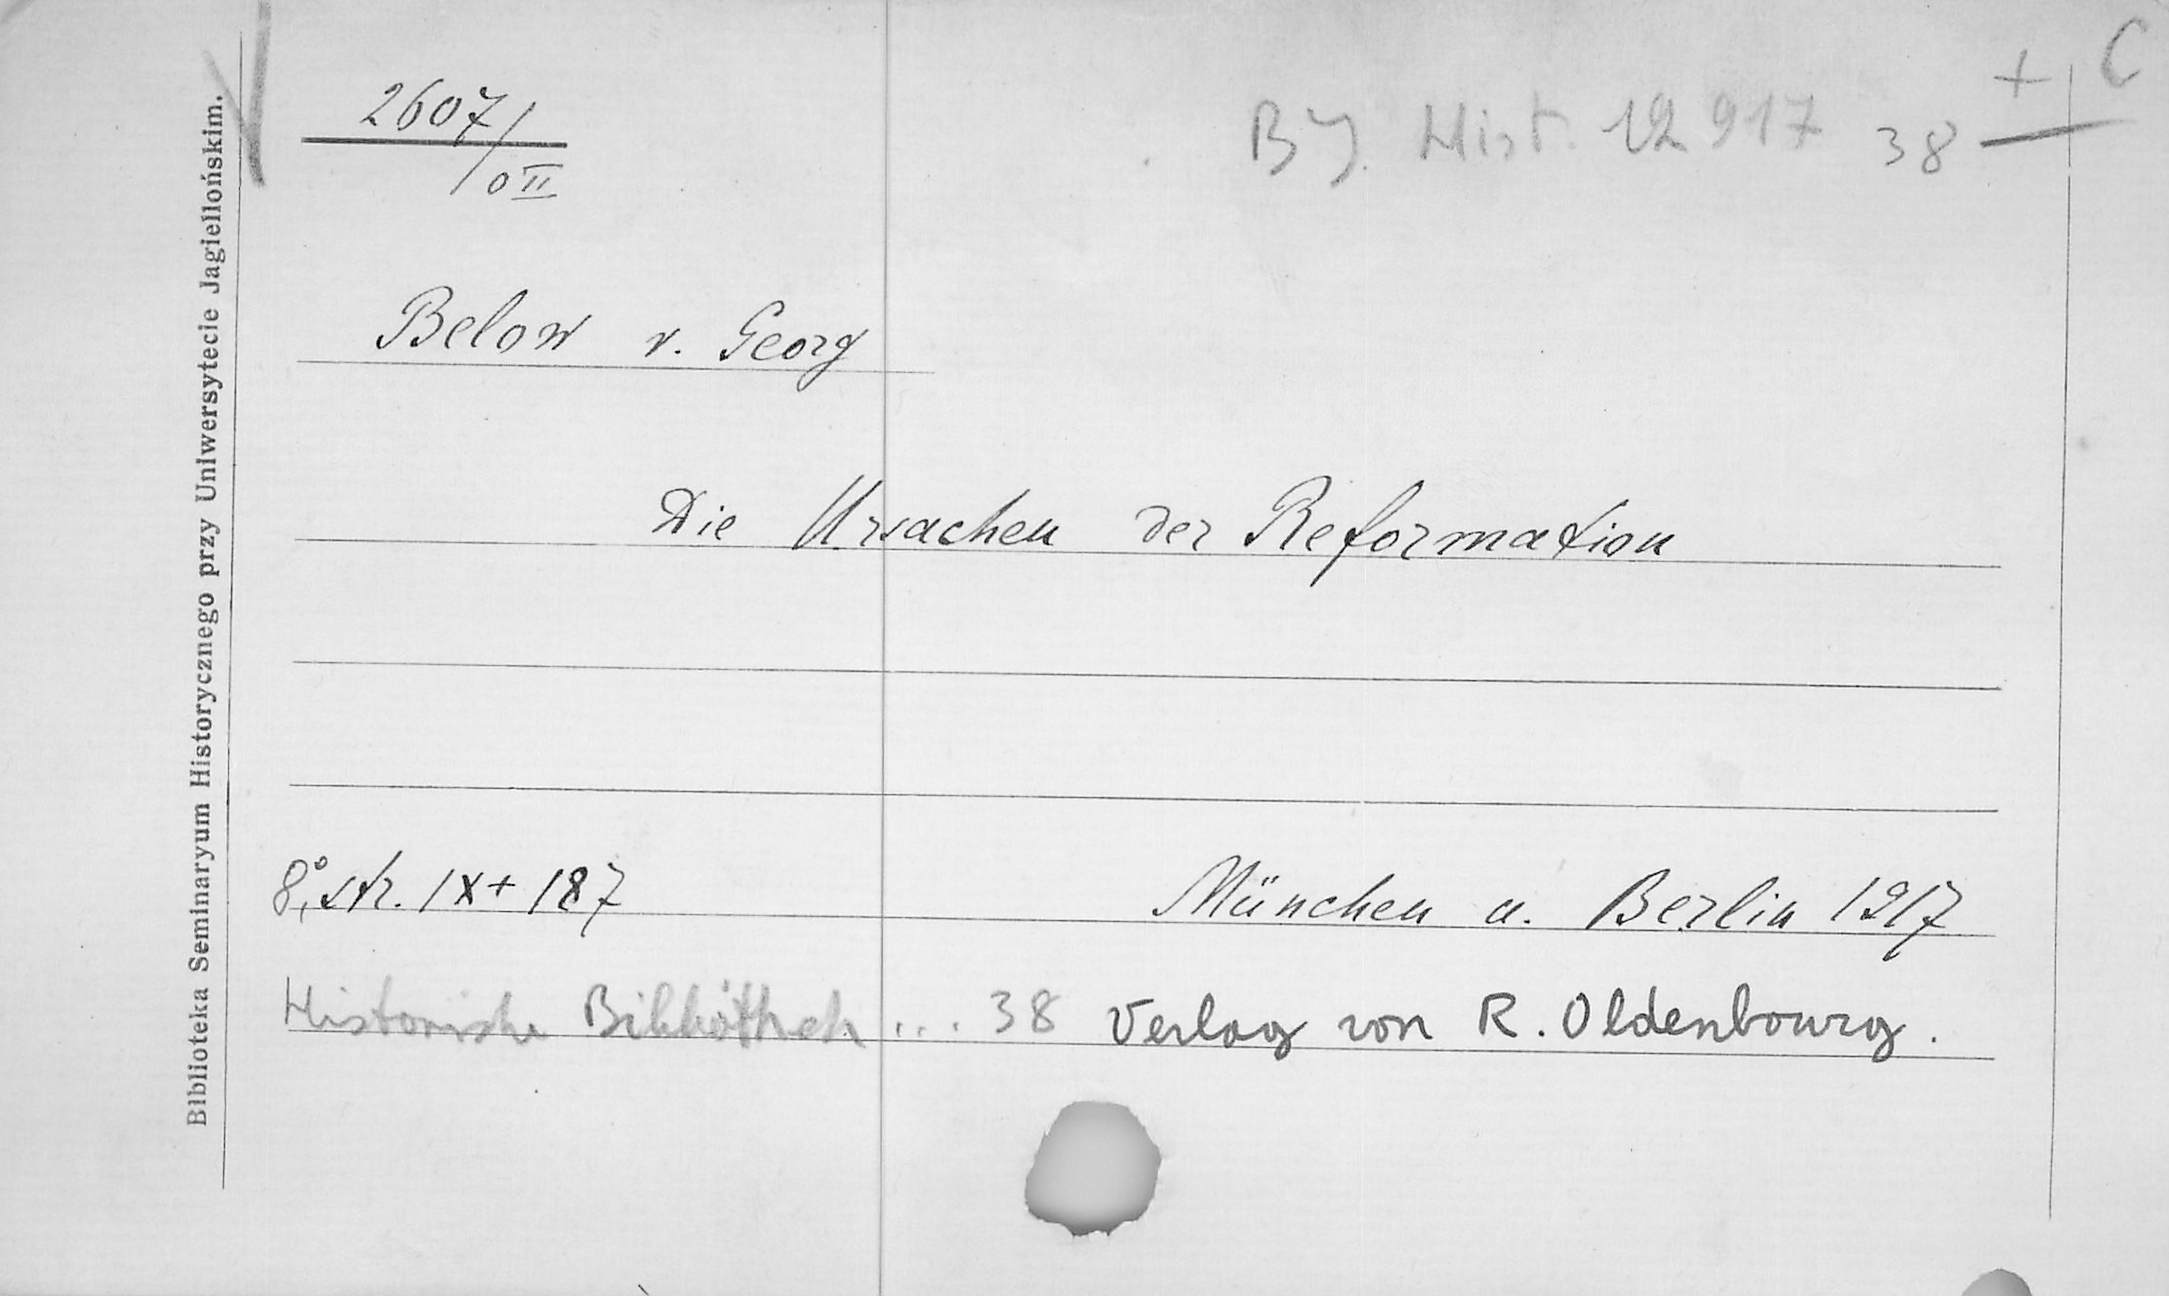 2607/
0 II
BJ. Hist. 12917 38
+ C
Below v. Georg
Die Ursachen der Reformation
8°, str. IX + 187
München u. Berlin 1917
Historische Bibliothek ... 38 Verlag von R. Oldenbourg.
Biblioteka Seminaryum Historycznego przy Uniwersytecie Jagiellońskim.